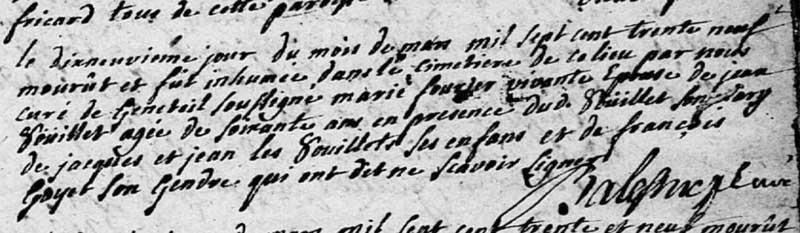 fricard tous de cette paroisse
le dixneuvieme jour du mois de mars mil sept cent trente neuf
mourût et fût inhumée dans le cimetiere de ce lieu par nous
curé de soussigné marie vivante Epouse de jean
Vouillet agée de soixante ans en presence dud. Vouillet son mary
de jacques et jean les Vouillots ses enfans et de françois
Goyet son Gendre qui ont dit ne scavoir signer
curé
de mars mil sept cent trente et neuf mourût